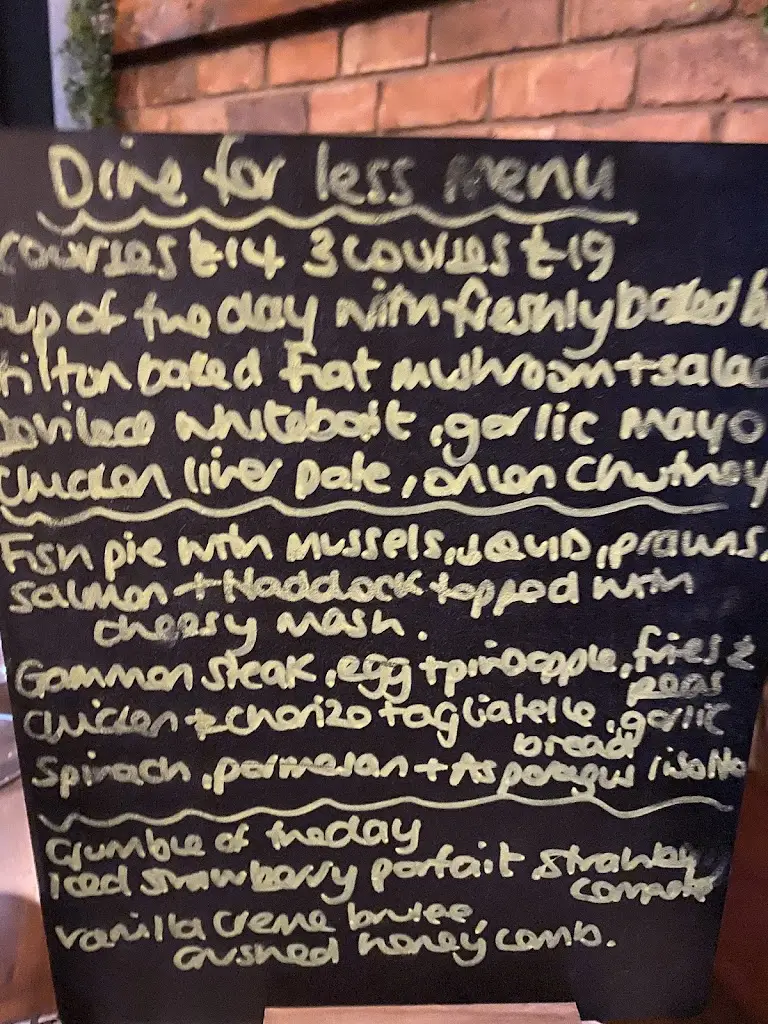 Dine for less menu
courses £14 3 courses £19
oup of the day with freshly baked b
tilton baked flat mushroom + salad
Deviled whitebait, garlic mayo
Chicken liver pate, onion chutney
Fish pie with mussels, squid, prawns,
salmon + Haddock topped with
cheesy mash.
Gammon steak, egg + pineapple, fries &
peas
Chicken & chorizo tagliatelle, garlic
bread
Spinach, parmesan + Asparagus risotto
Crumble of the day
Iced strawberry parfait, strawby
compote
vanilla creme brulee,
crushed honey comb.